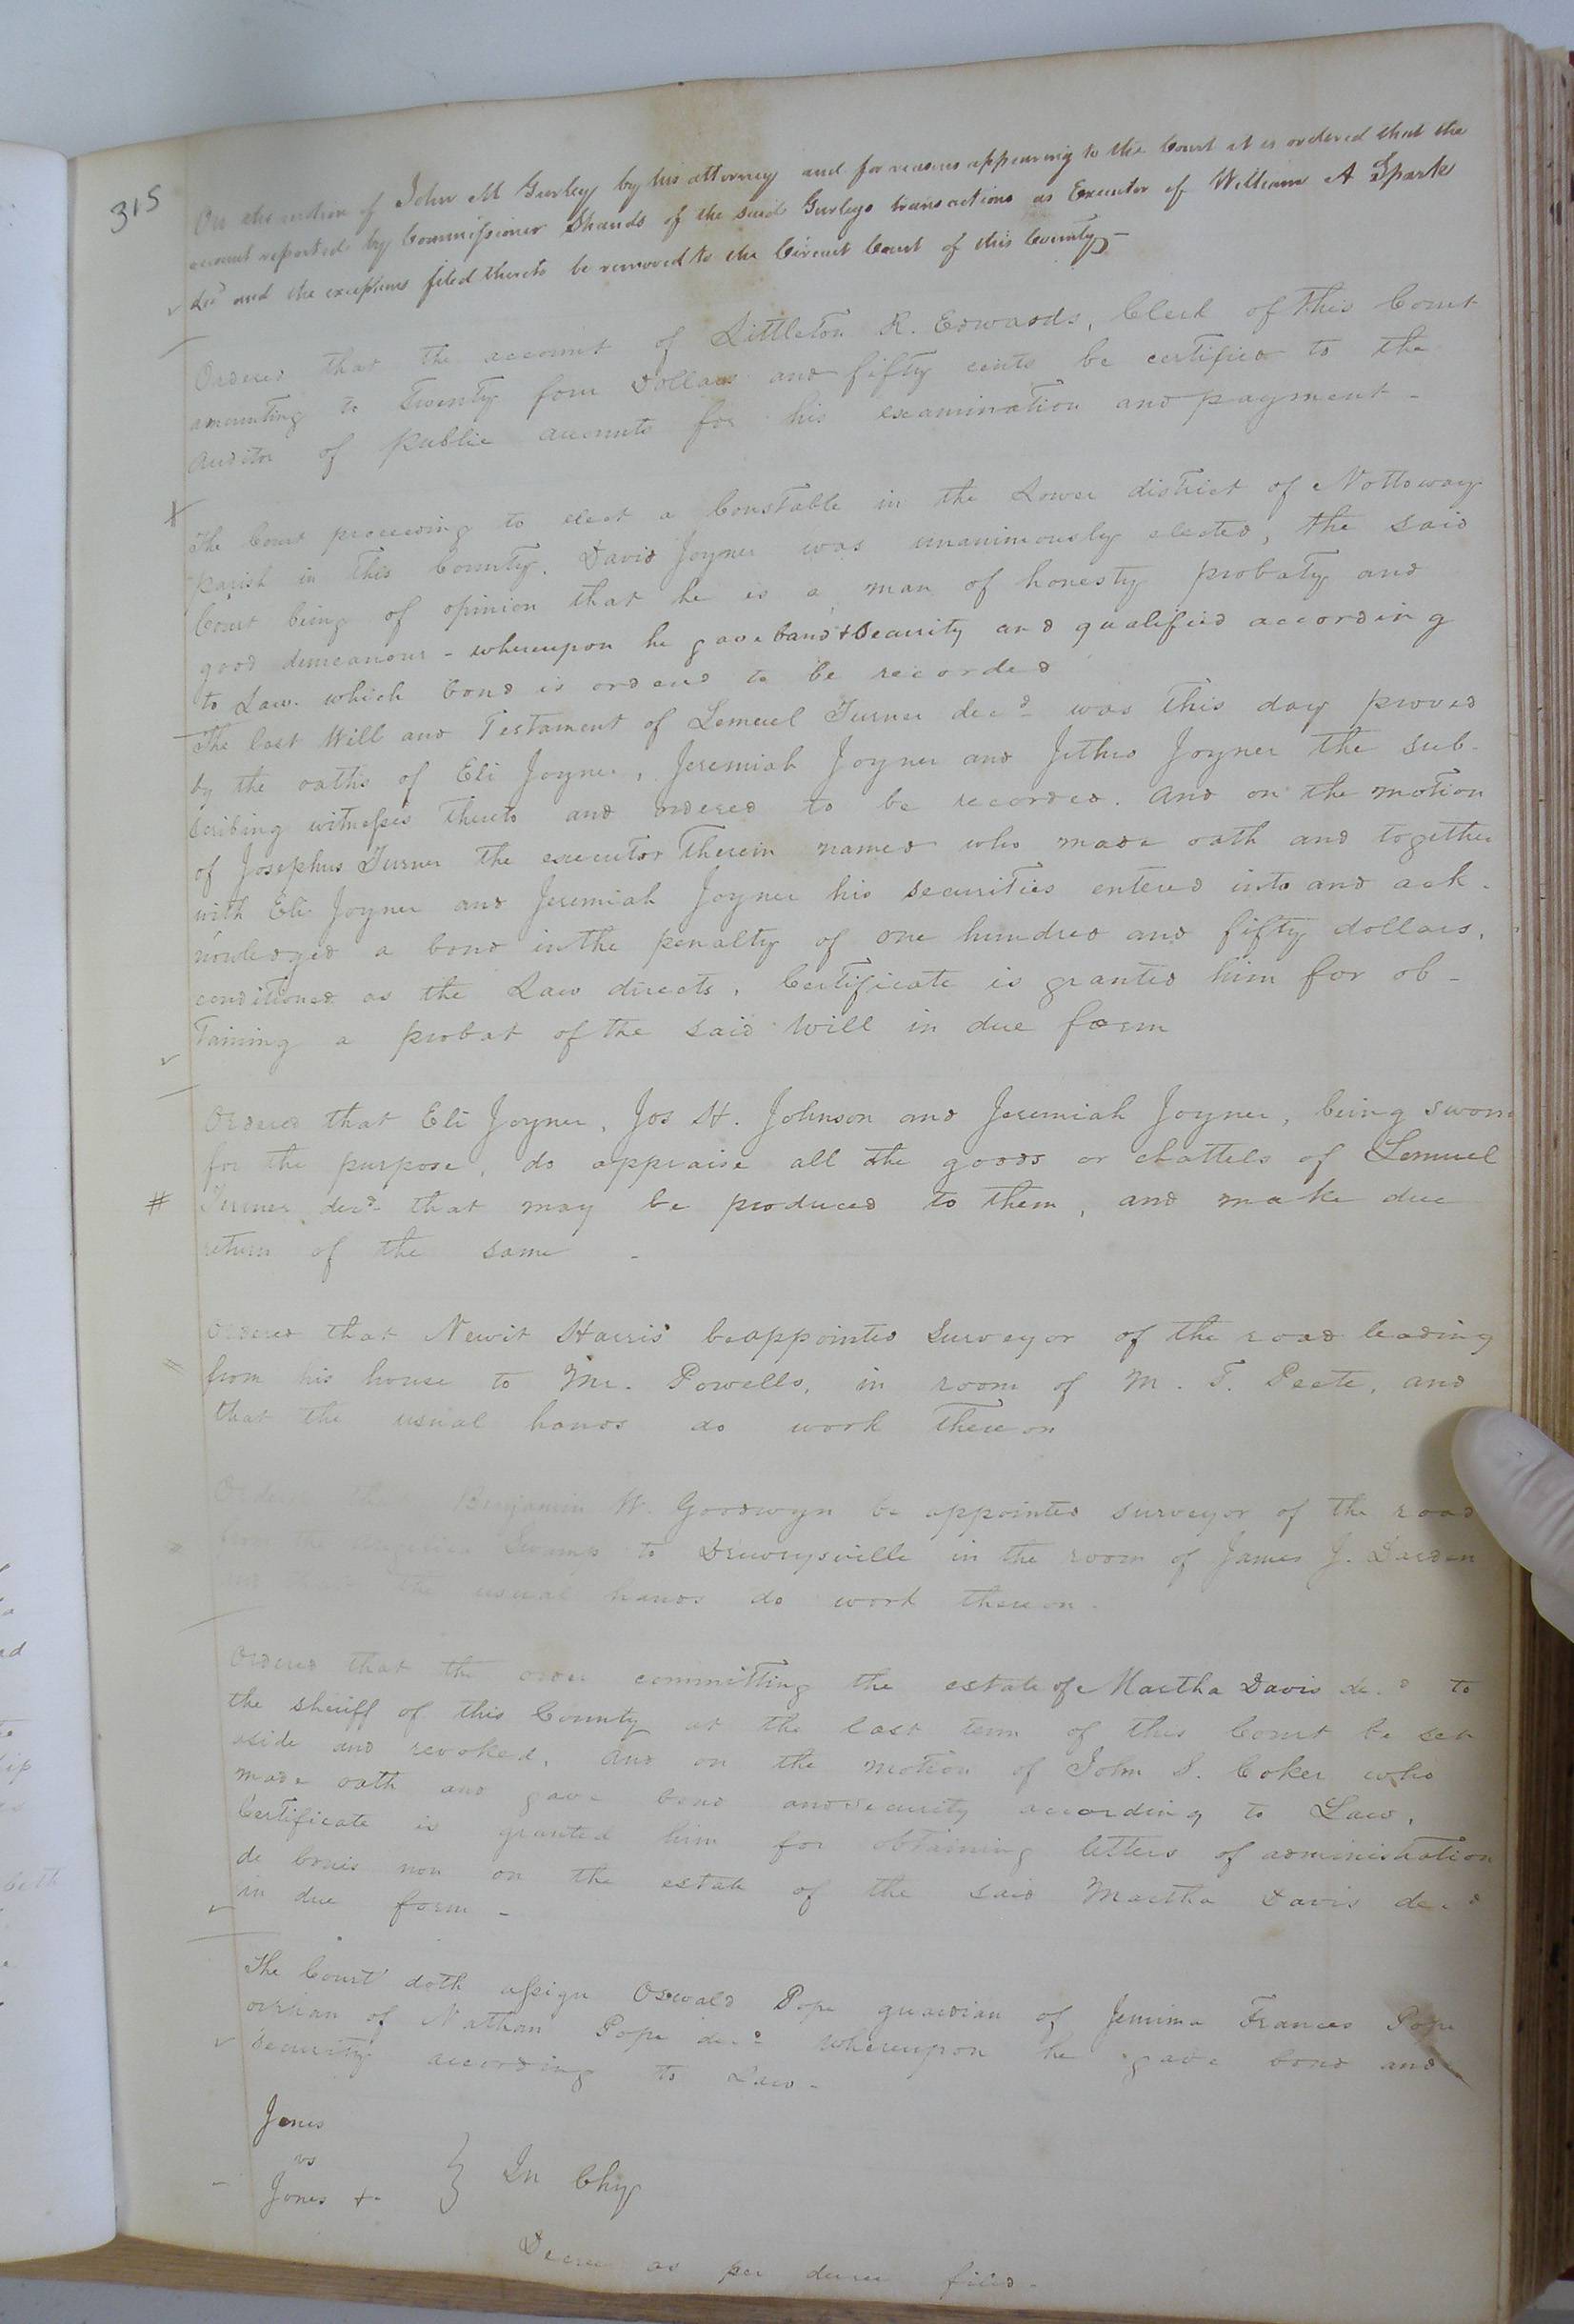 315
On the motion of John M Gurley by his attorney and for reasons appearing to the Court it is ordered that the
account reported by Commissioner Shands of the said Gurleys transactions as Executor of William A Spark
decd and the exceptions filed thereto be removed to the Circuit Court of this County –
Ordered that the account of Littleton R. Edwards, Clerk of this Court
amounting to Twenty four Dollars and fifty cents be certified to the
Auditor of Public accounts for his examination and payment –
The Court proceeding to elect a Constable in the Lower district of Nottoway
Parish in this County. David Joyner was unanimously elected, the said
Court being of opinion that he is a man of honesty probaty and
good demeanour – whereupon he gave band & Security and qualified according
to Law. which bond is ordered to be recorded
The last Will and Testament of Lemuel Turner decd was this day proved
by the oaths of Eli Joyner, Jeremiah Joyner and Jethro Joyner the sub-
scribing witnesses thereto and ordered to be recorded. And on the motion
of Josephus Turner the executor therein named who made oath and together
with Eli Joyner and Jeremiah Joyner his securities entered into and ack-
nowledged a bond in the penalty of one hundred and fifty dollars,
conditioned as the Law directs, Certificate is granted him for ob-
taining a probat of the said Will in due form
Ordered that Eli Joyner, Jos H. Johnson and Jeremiah Joyner, being sworn
for the purpose, do appraise all the goods or chattels of Lemuel
# Turner decd that may be produced to them, and make due
return of the same –
Ordered that Newit Harris be appointed Surveyor of the road leading
from his house to Mr. Powells, in room of M. T. Peete, and
that the usual hands do work thereon
Ordered that Benjamin W. Goodwyn be appointed surveyor of the road
from the Swamp to Drewrysville in the room of James J. Darden
and that the usual hands do work thereon.
Ordered that the order committing the estate of Martha Davis decd to
the sheriff of this County at the last term of this Court be set
aside and revoked. And on the motion of John S. Coker who
made oath and gave bond and security according to Law,
Certificate is granted him for obtaining letters of administration
de bonis non on the estate of the said Martha Davis decd
in due form –
The Court doth assign Oswald Pope guardian of Jemima Frances Pope
orphan of Nathan Pope decd whereupon he gave bond and
security according to Law –
Jones
vs
Jones &c } In Chy
Decree as per decree filed –